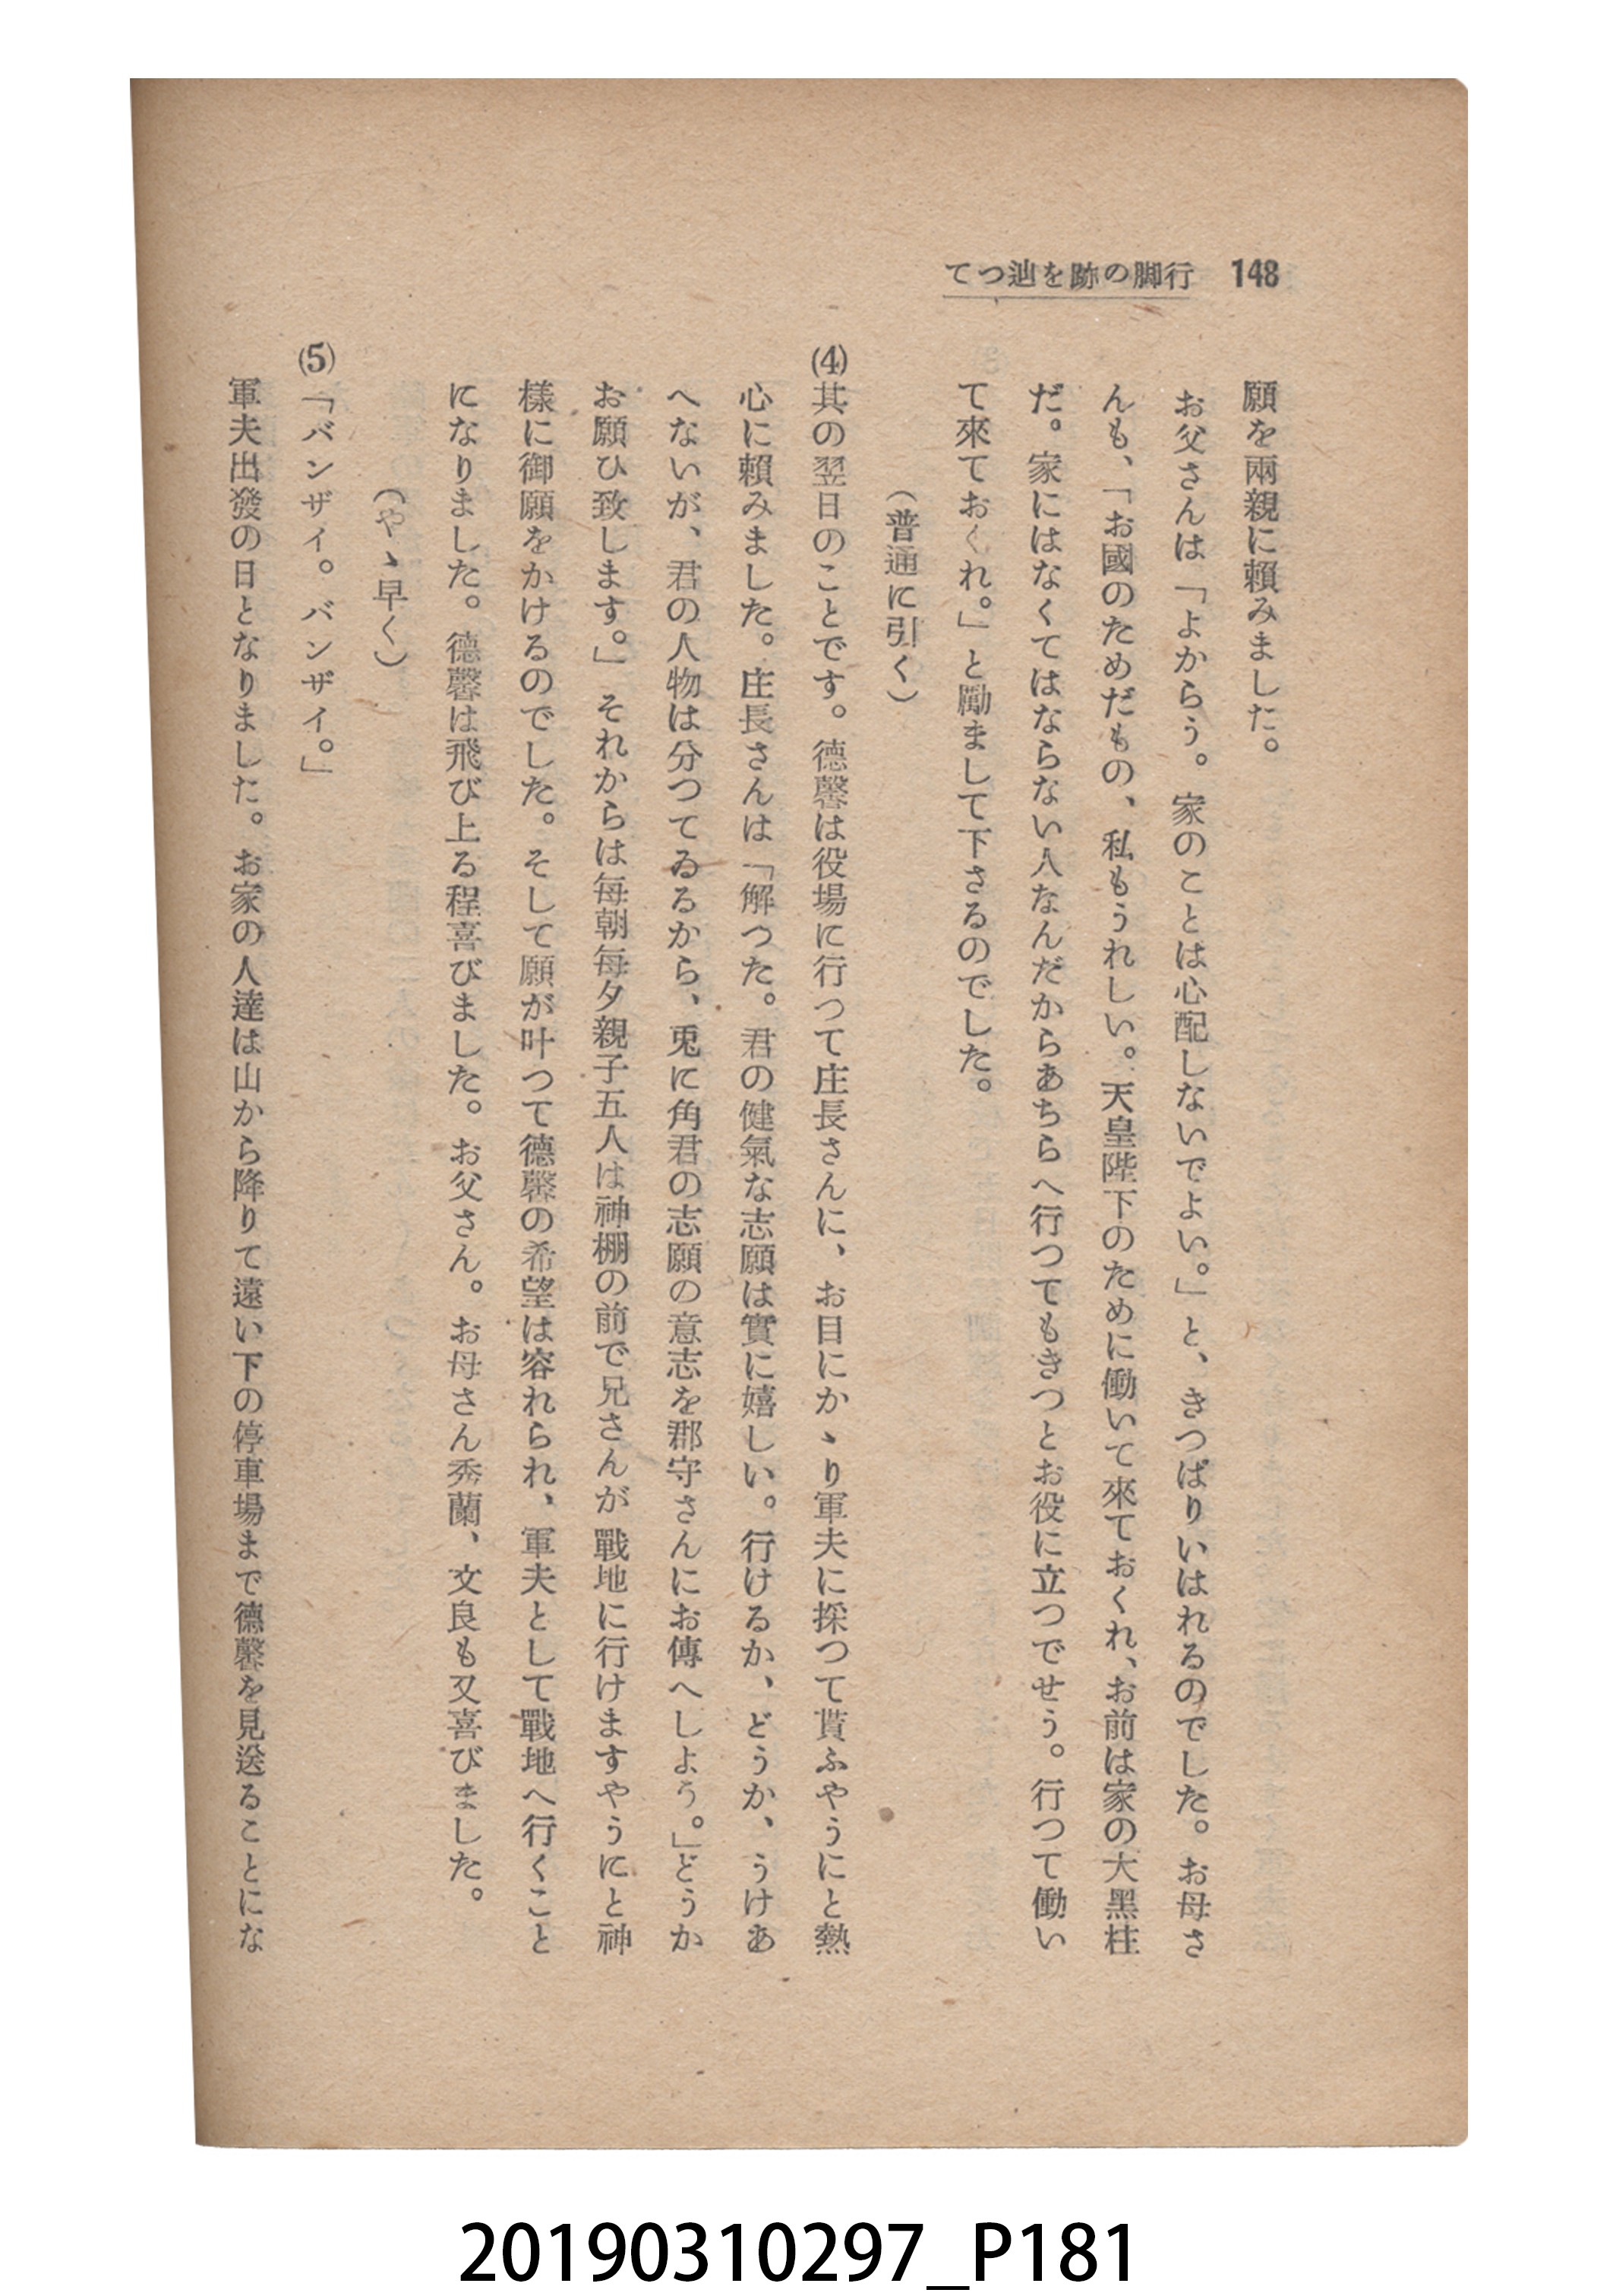 148 行脚の跡を辿つて
願を兩親に賴みました。
お父さんは「よからう。家のことは心配しないでよい。」と、きつぱりいはれるのでした。お母さ
んも、「お國のためだもの、私もうれしい。天皇陛下のために働いて來ておくれ、お前は家の大黑柱
だ。家にはなくてはならない人なんだからあちらへ行つてもきつとお役に立つでせう。行つて働い
て來ておくれ。」と勵まして下さるのでした。
（普通に引く）
(4) 其の翌日のことです。德馨は役場に行つて庄長さんに、お目にかゝり軍夫に採つて貰ふやうにと熱
心に賴みました。庄長さんは「解つた。君の健氣な志願は實に嬉しい。行けるか、どうか、うけあ
へないが、君の人物は分つてゐるから、兎に角君の志願の意志を郡守さんにお傳へしよう。」どうか
お願ひ致します。」それからは每朝每夕親子五人は神棚の前で兄さんが戰地に行けますやうにと神
樣に御願をかけるのでした。そして願が叶つて德馨の希望は容れられ、軍夫として戰地へ行くこと
になりました。德馨は飛び上る程喜びました。お父さん。お母さん秀蘭、文良も又喜びました。
（やゝ早く）
(5) 「バンザイ。バンザイ。」
軍夫出發の日となりました。お家の人達は山から降りて遠い下の停車場まで德馨を見送ることにな
20190310297_P181